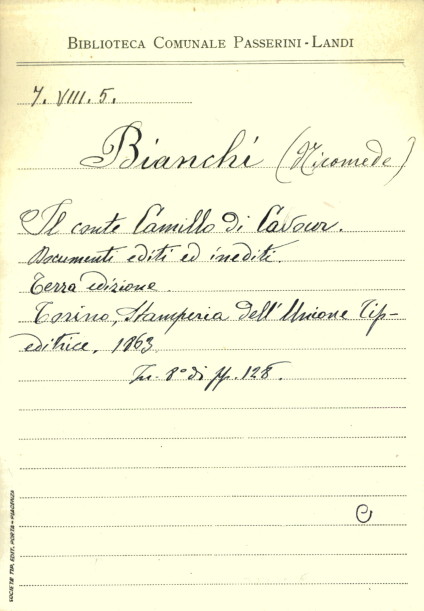 BIBLIOTECA COMUNALE PASSERINI-LANDI
7. VIII. 5.
Bianchi (Nicomede)
Il conte Camillo di Cavour.
Documenti editi ed inediti.
Terza edizione.
Torino, Stamperia dell'Unione Tip-
editrice, 1863
In-8° di pp. 128.
C
SOCIETÀ TIP. EDIT. PORTA - PIACENZA